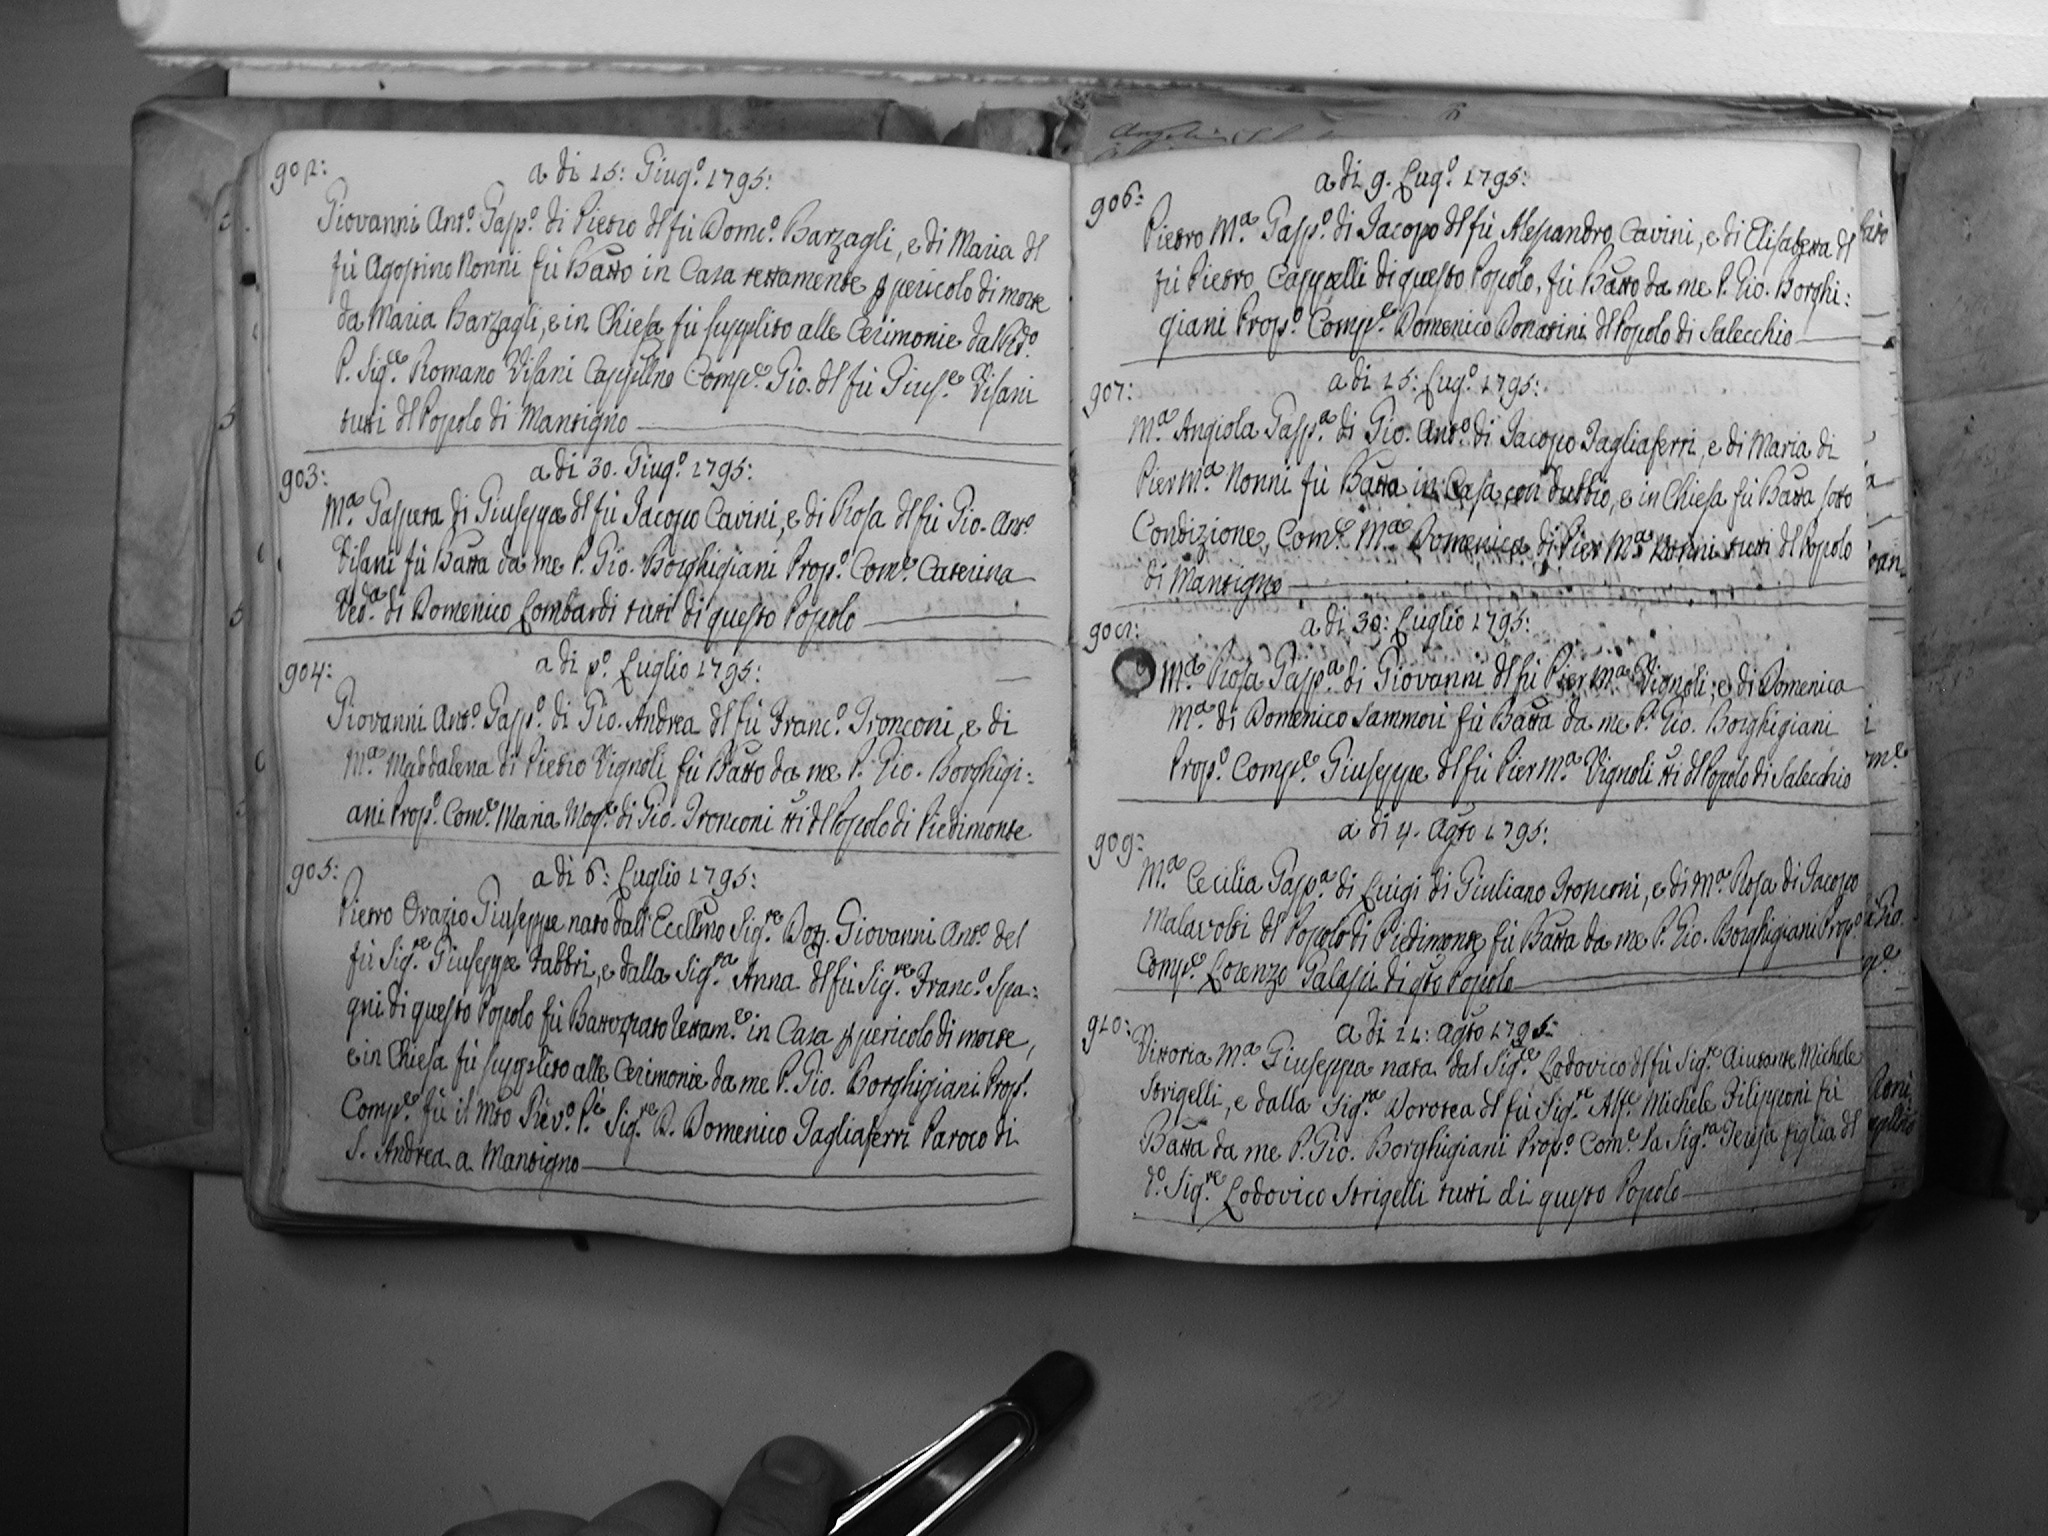 902:
a di 15: Giug.º 1795:
Giovanni Ant.º Gasp.º di Pietro del fù Dom.cº Barzagli, e di Maria del
fù Agostino Nonni fù Batto in Casa rettamente p pericolo di morte
da Maria Barzagli, e in Chiesa fù supplito alle Cerimonie dal Rdº
P. Sig.re Romano Visani Cappllno Comp.e Gio. del fù Gius.e Visani
tutti del Popolo di Mantigno
903:
a di 30. Giug.º 1795:
M.a Gaspera di Giuseppe del fù Jacopo Cavini, e di Rosa del fù Gio. Ant.º
Visani fù Batta da me P. Gio. Borghigiani Prop.º Com.e Caterina
Ved.a di Domenico Lombardi tutti di questo Popolo
904:
a di pº Luglio 1795:
Giovanni Ant.º Gasp.º di Gio. Andrea del fù Franc.º Tronconi, e di
M.a Maddalena di Pietro Vignoli fù Batto da me P. Gio. Borghigi:
ani Prop.º Com.e Maria Mog.e di Gio. Tronconi tti del Popolo di Piedimonte
905:
a di 6: Luglio 1795:
Pietro Orazio Giuseppe nato dall' Eccllmo Sig.re Dott. Giovanni Ant.º del
fù Sig.re Giuseppe Fabbri, e dalla Sig.ra Anna del fù Sig.re Franc.º Spa:
gni di questo Popolo fù Battezzato rettam.e in Casa p pericolo di morte,
e in Chiesa fù supplito alle Cerimonie da me P. Gio. Borghigiani Prop.º
Comp.e fù il Mto Rev.º P.e Sig.re D. Domenico Tagliaferri Paroco di
S. Andrea a Mantigno
906:
a di 9. Lug.º 1795:
Pietro M.a Gasp.º di Jacopo del fù Alessandro Cavini, e di Elisabetta del
fù Pietro Cappelli di questo Popolo, fù Batto da me P. Gio. Borghi:
giani Prop.º Comp.e Domenico Donatini del Popolo di Salecchio
907:
a di 15: Lug.º 1795:
M.a Angiola Gasp.a di Gio. Ant.º di Jacopo Tagliaferri, e di Maria di
Pier M.a Nonni fù Batta in Casa con dubbio, e in Chiesa fù Batta sotto
Condizione, Com.e M.a Domenica di Pier M.a Nonni tutti del Popolo
di Mantigno
908:
a di 30: Luglio 1795:
M.a Rosa Gasp.a di Giovanni del fù Pier M.a Vignoli, e di Domenica
M.a di Domenico Sammori fù Batta da me P. Gio. Borghigiani
Prop.º Comp.e Giuseppe del fù Pier M.a Vignoli tti del Popolo di Salecchio
909:
a di 4. Agto 1795:
M.a Cecilia Gasp.a di Luigi di Giuliano Tronconi, e di M.a Rosa di Jacopo
Malavolti del Popolo di Piedimonte fù Batta da me P. Gio. Borghigiani Prop.º
Comp.e Lorenzo Galassi di qto Popolo
910:
a di 11: Agto 1795:
Vittoria M.a Giuseppa nata dal Sig.re Lodovico del fù Sig.re Aiutante Michele
Strigelli, e dalla Sig.ra Dorotea del fù Sig.re Alf.e Michele Filipponi fù
Batta da me P. Gio. Borghigiani Prop.º Com.e la Sig.ra Teresa figlia del
dº Sig.re Lodovico Strigelli tutti di questo Popolo